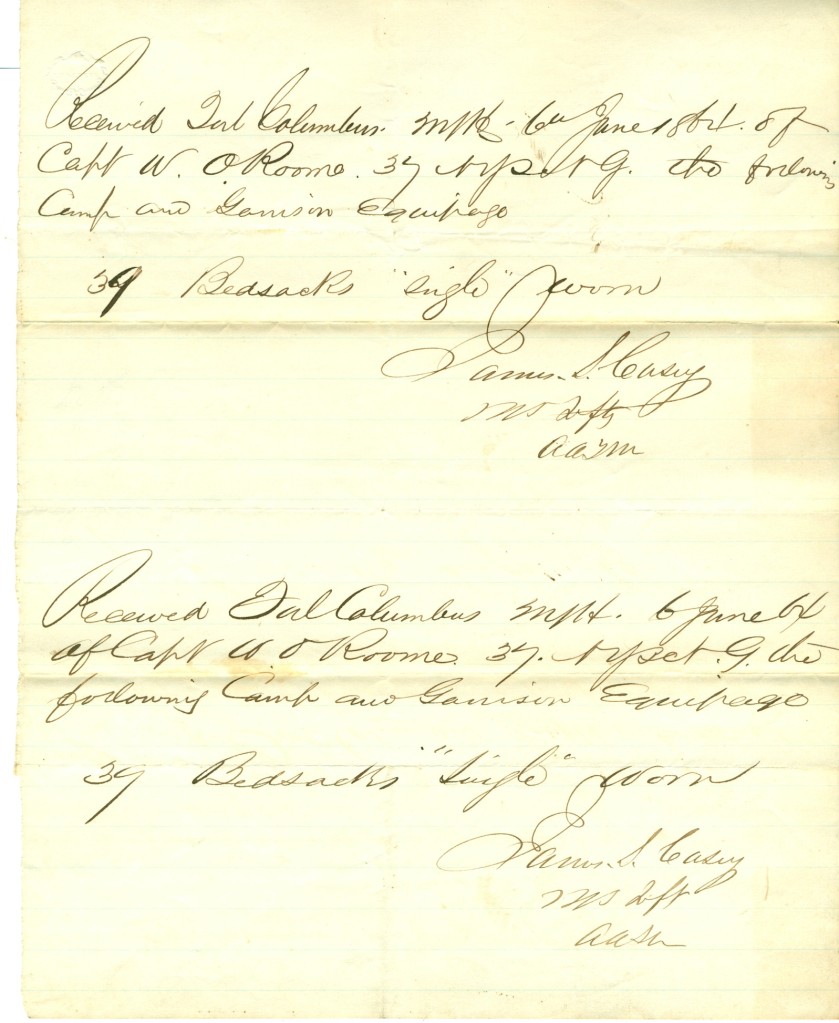 Received Fort Columbus. NYH. 6th June 1864. of
Capt W. O Roome. 37 NYS N G. the following
Camp and Garrison Equipage
39 Bedsacks "single" worn
James. S. Casey
AAQM
Received Fort Columbus NYH. 6 June 64
of Capt W. O Roome. 37. NYS N. G. the
following Camp and Garrison Equipage
39 Bedsacks "single" worn
James. S. Casey
AAQM